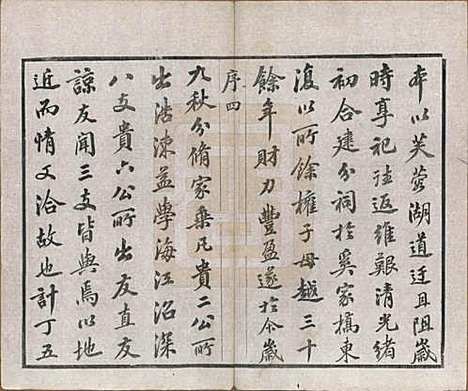 本以芙蓉湖道迂且阻歲
時享祀往返維艱清光緒
初合建分祠於奚家橋東
復以所餘權子母越三十
餘年財力豐盈遂於今歲
序四
九秋分脩家乘凡貴二公所
出浩涑益學海江沼深
八支貴六公所出友直友
諒友聞三支皆與焉以地
近而情又洽故也計丁五